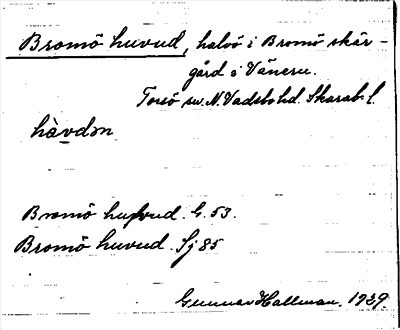 Bromö huvud, halvö i Bromö skär-
gård i Vänern.
Torsö sn. N. Vadsbo hd. Skarab. l.
hàvdən
Bromö hufvud. G. 53.
Bromö huvud. Sj 85
Gunnar Hallman. 1929